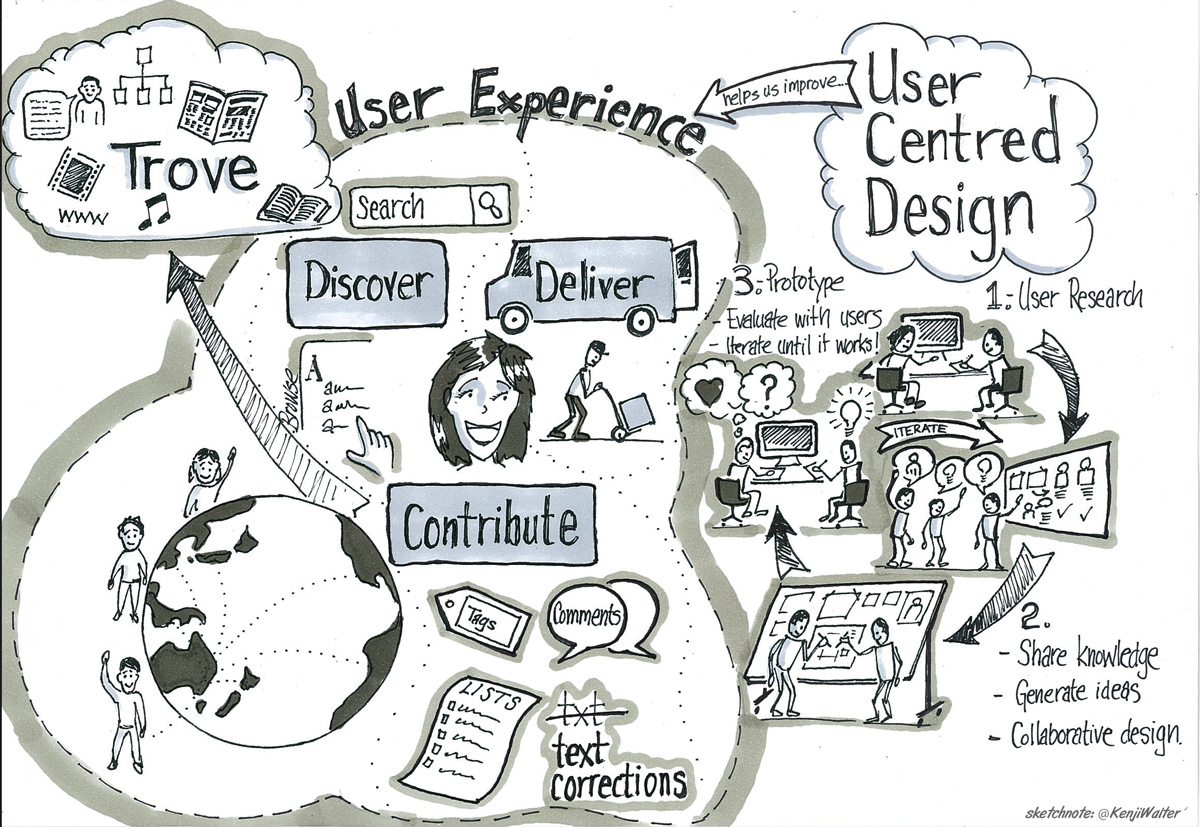 Trove
www
User Experience
helps us improve...
User
Centred
Design
Search
Discover
Deliver
Browse
A
Contribute
Tags
Comments
LISTS
txt
text
corrections
1. User Research
ITERATE
2.
- Share knowledge
- Generate ideas
- Collaborative design.
3. Prototype
- Evaluate with users
- Iterate until it works!
?
sketchnote: @KenjiWalter